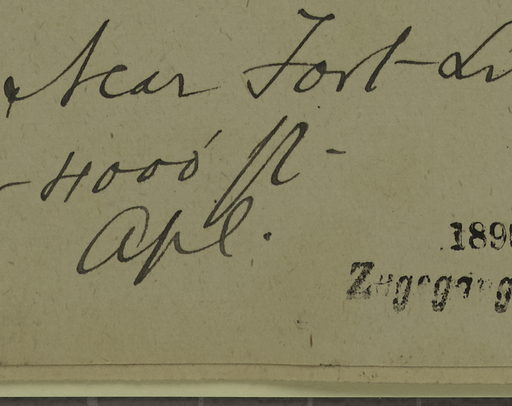 Near Fort Li
- 4000' ft -
Apl.
189
Zugegang